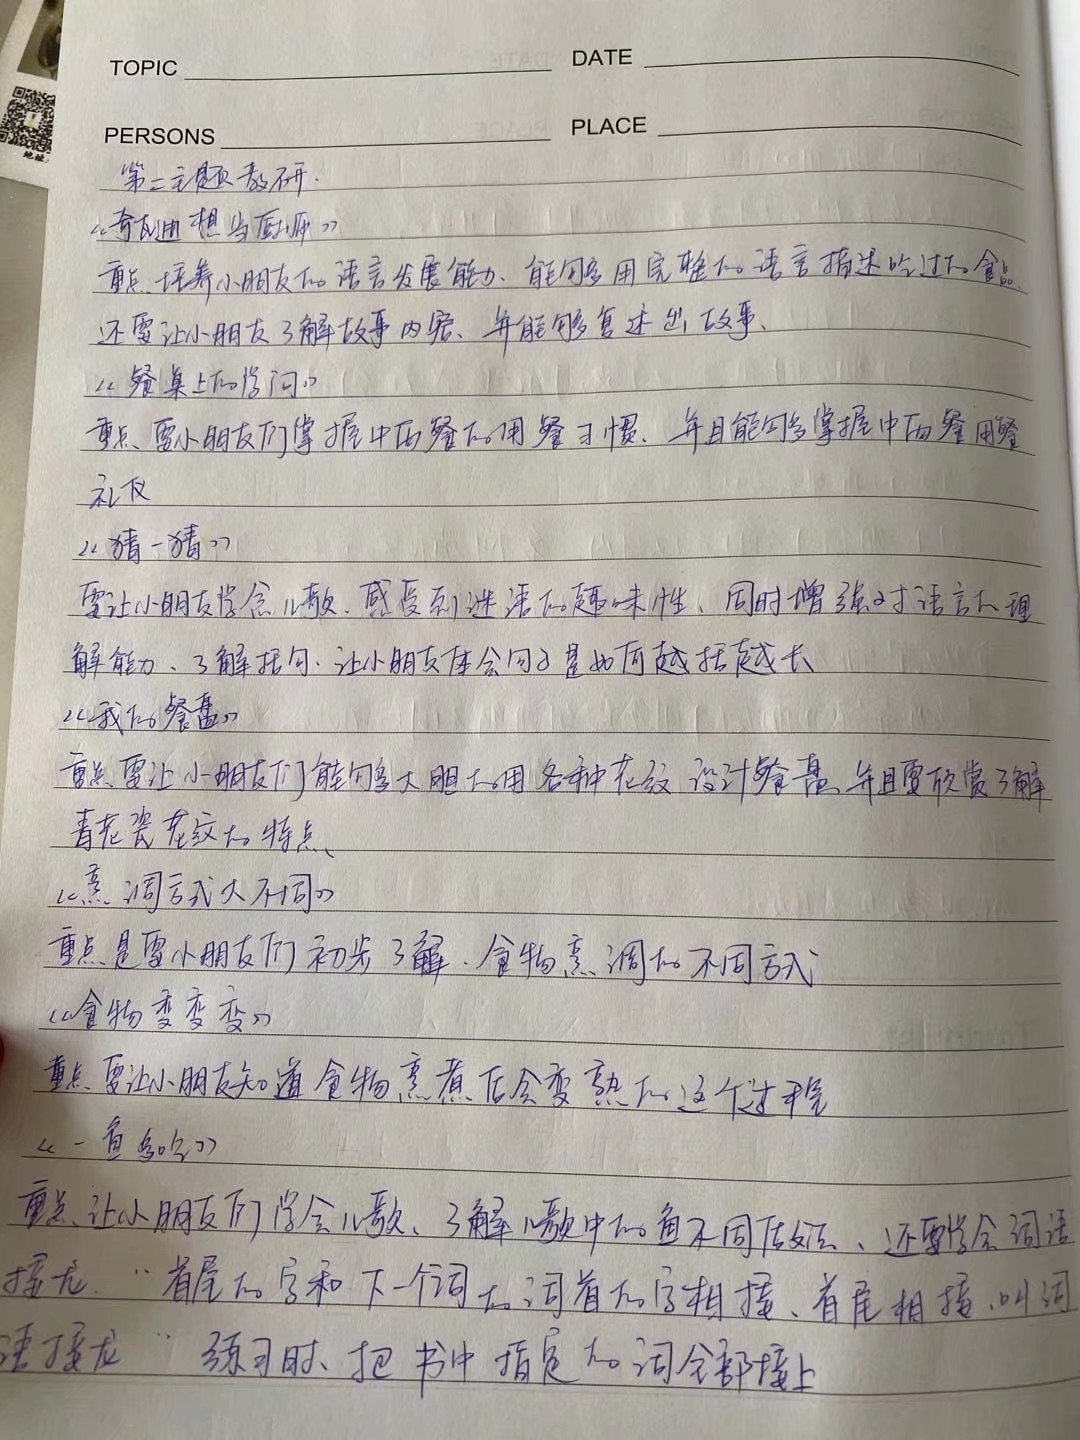 TOPIC DATE
PERSONS PLACE
第二主题教研.
《奇瓦迪想当厨师》
重点、培养小朋友的语言发展能力、能够用完整的语言描述吃过的食品.
还要让小朋友了解故事内容、并能够复述出故事、
《餐桌上的学问》
重点、要小朋友们掌握中西餐的用餐习惯、并且能够掌握中西餐用餐
礼仪
《猜一猜》
要让小朋友学念儿歌、感受到谜语的趣味性、同时增强对语言的理
解能力、了解括句、让小朋友体会句子是如何越括越长
《我的餐盘》
重点要让小朋友们能够大胆的用各种花纹设计餐盘、并且要欣赏了解
青花瓷花纹的特点、
《烹调方式大不同》
重点是要小朋友们初步了解、食物烹调的不同方式
《食物变变变》
重点要让小朋友知道食物烹煮后会变熟的这个过程
《一鱼多吃》
重点、让小朋友们学会儿歌、了解儿歌中的鱼不同做法、还要学会词语
接龙、"首尾的字和下一个词的词首的字相接、首尾相接、叫词
语接龙" 练习时、把书中指定的词全部接上